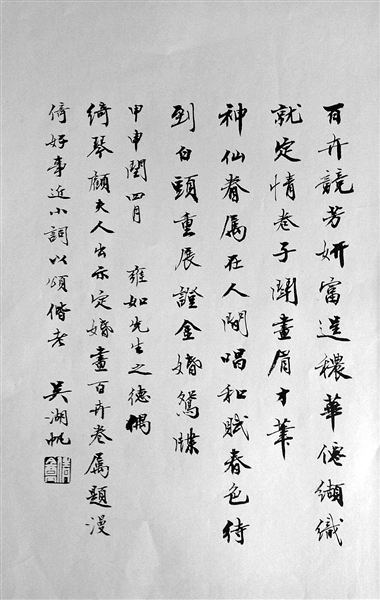 百卉競芳妍富逞穠華僊纈織
就定情卷子鬭畫眉才筆
神仙眷屬在人間唱和賦春色待
到白頭重展證金婚鴛牒
甲申閏四月 雍如先生之德偶
綺琴顧夫人出示定婚畫百卉卷屬題漫
倚好事近小詞以頌偕老 吳湖帆